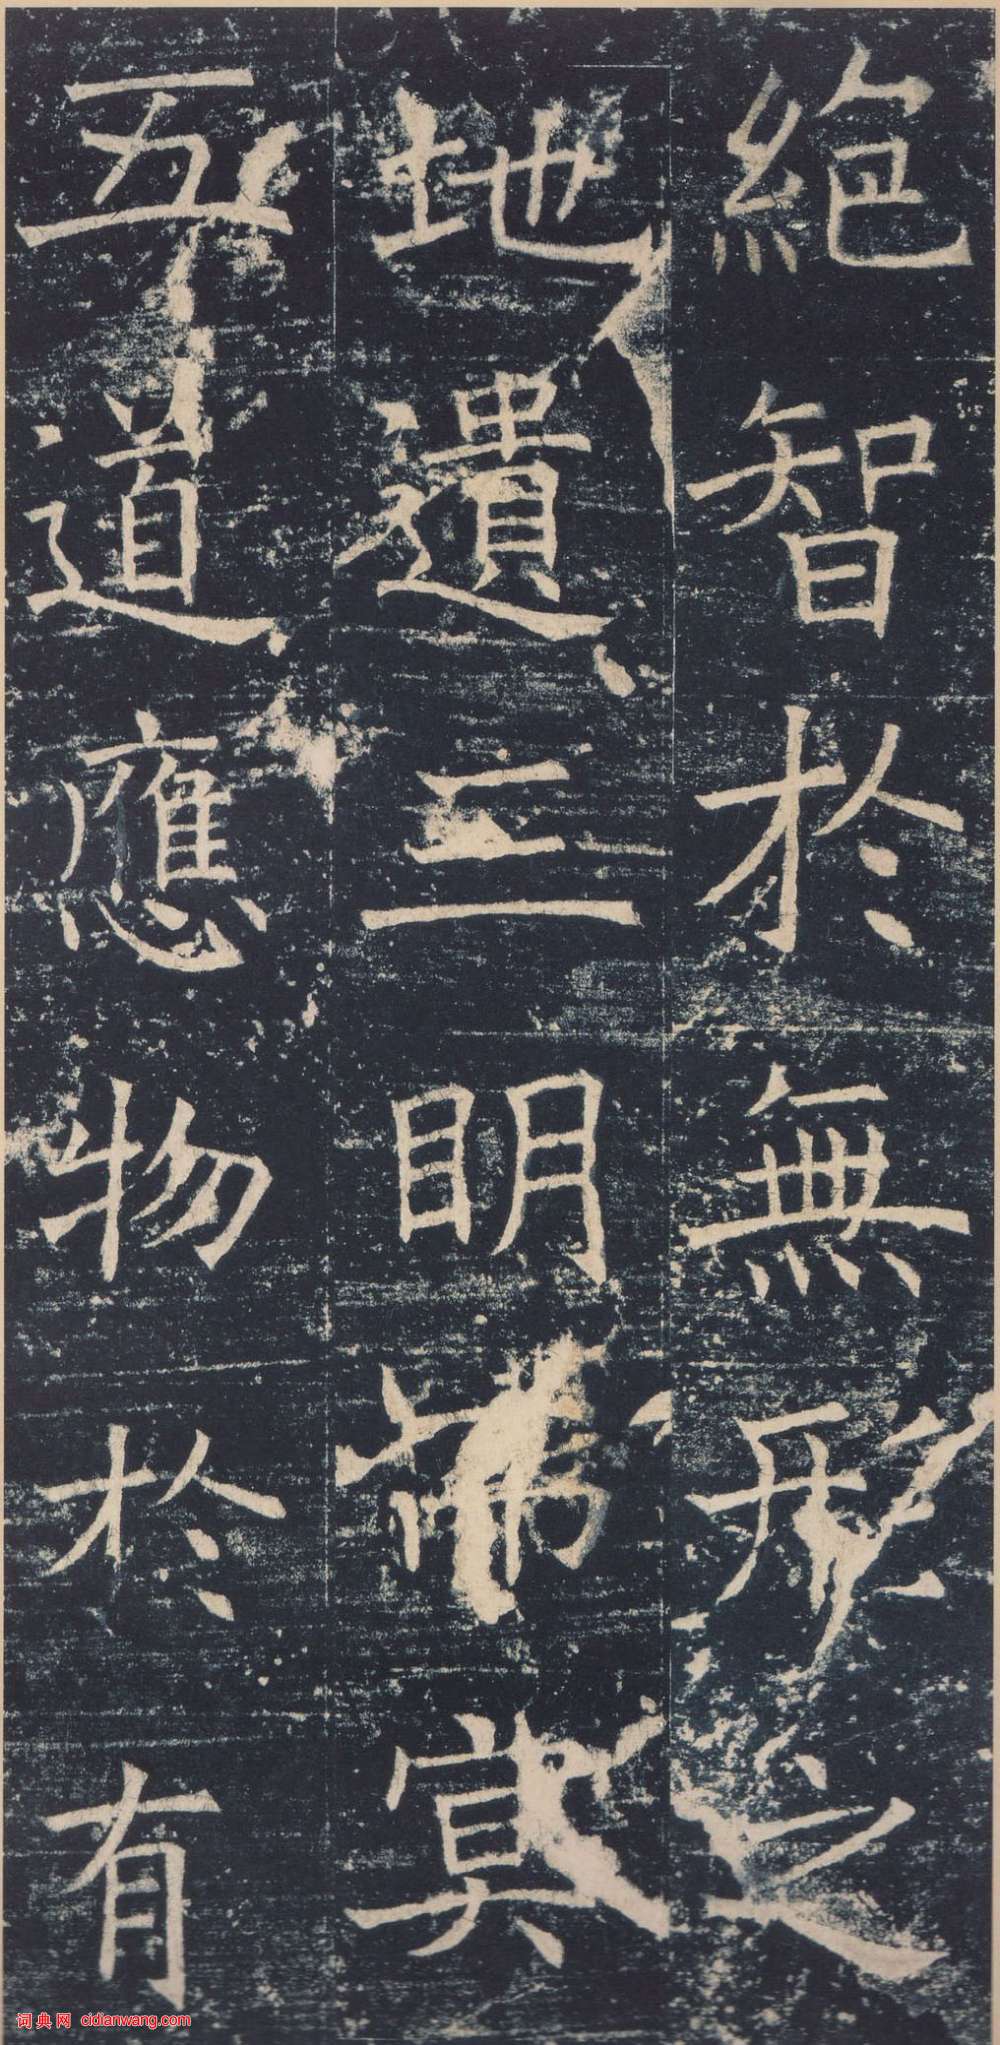 絶智於無形之
地遺三眀冥
五道應物於有
词典网 cidianwang.com